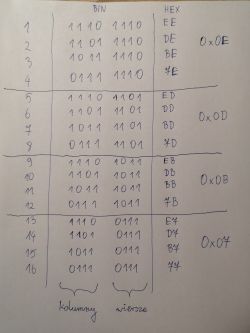 BIN HEX
1 1110 1110 EE
2 1101 1110 DE
3 1011 1110 BE 0x0E
4 0111 1110 7E
5 1110 1101 ED
6 1101 1101 DD
7 1011 1101 BD 0x0D
8 0111 1101 7D
9 1110 1011 EB
10 1101 1011 DB
11 1011 1011 BB 0x0B
12 0111 1011 7B
13 1110 0111 E7
14 1101 0111 D7
15 1011 0111 B7 0x07
16 0111 0111 77
kolumny wiersze